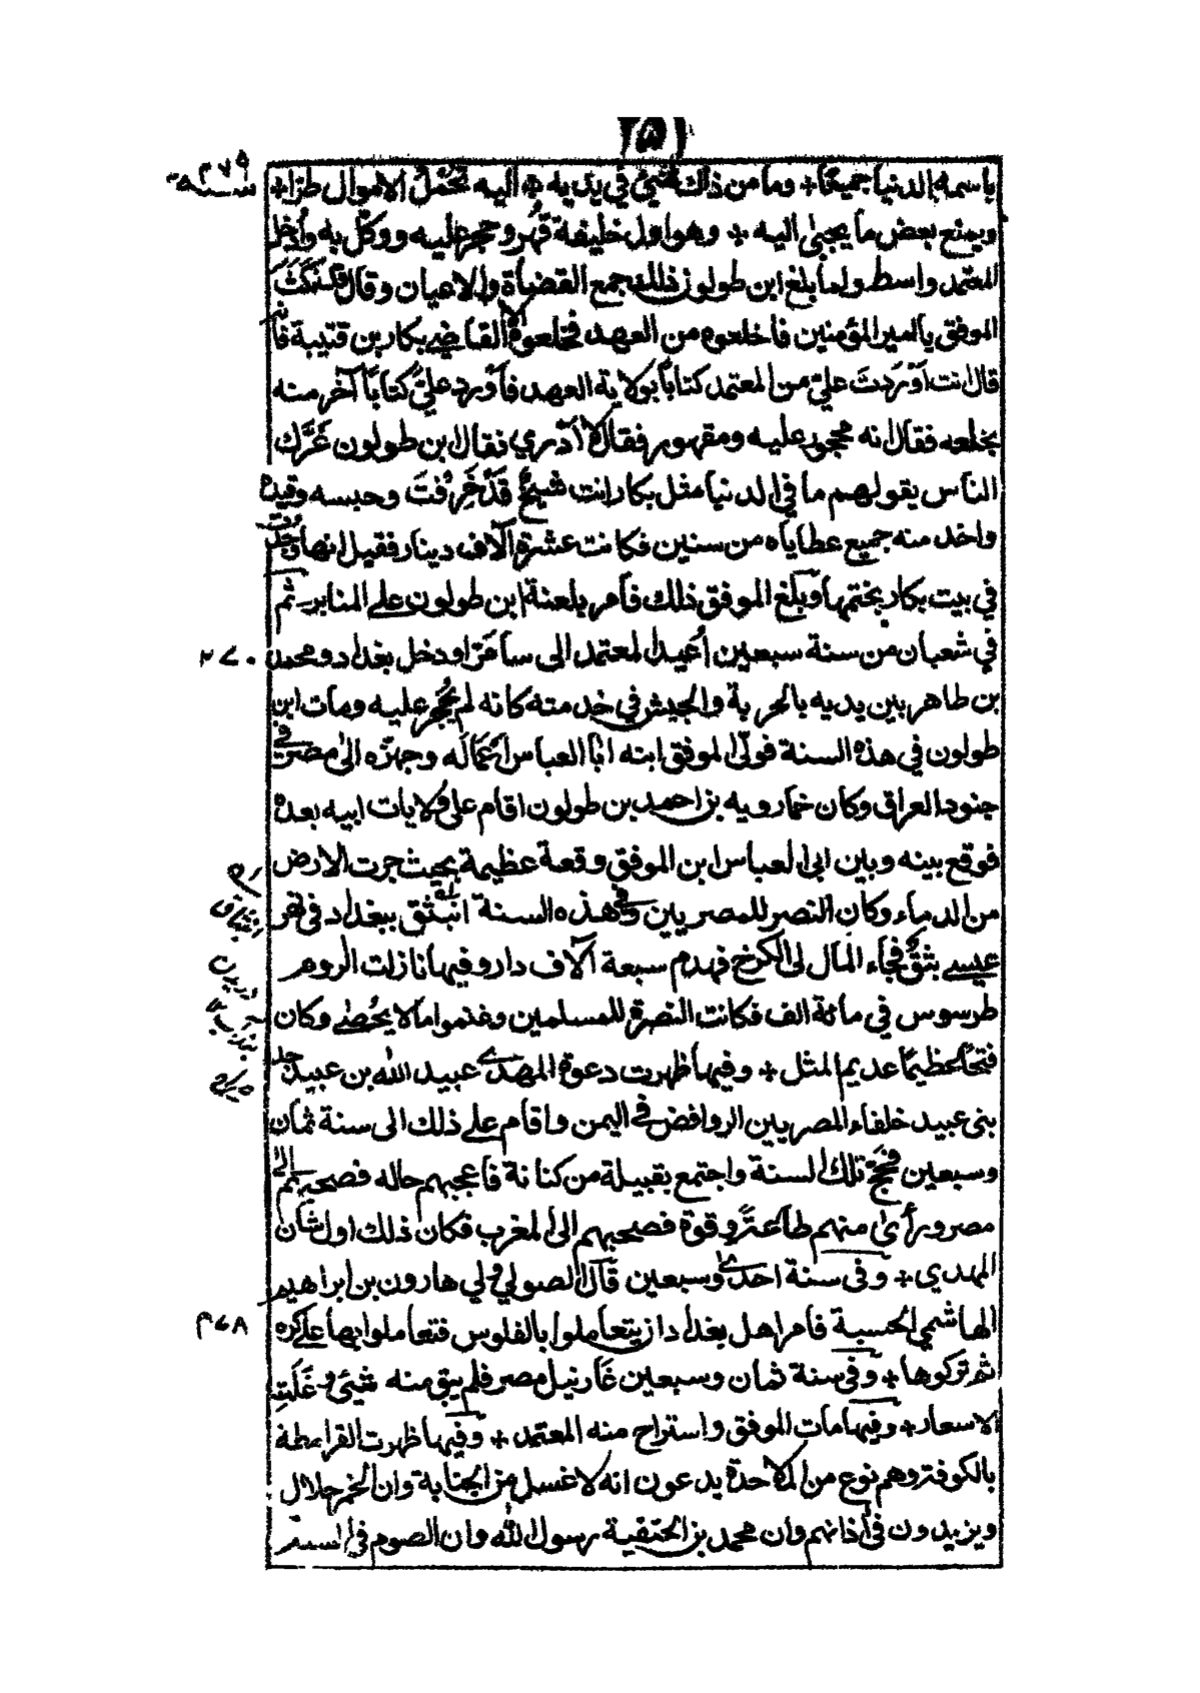 ٢٥١
باسمه الدنيا جميعًا + وما من ذلك شيئ في يديه + اليه تُحْمَلُ الاموال طرّا +
ويمنع بعض ما يجبىٰ اليه + وهو اول خليفة قُهِر وحجر عليه ووكّل به وأدخل
المعتمد واسط ولما بلغ ابن طولون ذلك جمع القضاة والاعيان وقال قد نَكَثَ
الموفق يا امير المؤمنين فاخلعوه من العهد فخلعوه الا القاضي بكار بن قتيبة فانه
قال انت أَوْرَدتَ عليّ من المعتمد كتابًا بولاية العهد فأَورد عليّ كتابًا آخر منه
بخلعه فقال انه محجور عليه ومقهور فقال لا أَدْري فقال ابن طولون غَرَّك
الناس بقولهم ما في الدنيا مثل بكار انت شيخٌ قَدْ خَرِفْتَ وحبسه وقيده
واخذ منه جميع عطاياه من سنين فكانت عشرة آلاف دينار فقيل انها وُجدت
في بيت بكار بختمها وبلغ الموفق ذلك فامر بلعنة ابن طولون على المنابر ثم
في شعبان من سنة سبعين أُعيد المعتمد الى سامَرّا ودخل بغداد ومحمد
٢٧٠
بن طاهر بين يديه بالحربة والجيش في خدمته كانه لم يُحجَر عليه ومات ابن
طولون في هذه السنة فولّى الموفق ابنه ابا العباس أعْمَالَه وجهزّه الىٰ مصر في
جنود العراق وكان خمارويه بن احمد بن طولون اقام على ولايات ابيه بعده
فوقع بينه وبين ابى العباس ابن الموفق وقعة عظيمة بحيث جرت الارض
من الدماء وكان النصر للمصريين وفي هذه السنة انبثق ببغداد فى نهر
عيسے بثقٌ فجاء المال الى الكرخ فهدم سبعة آلاف دار وفيها نازلت الروم
طرسوس في مائة الف فكانت النصرة للمسلمين وغنموا ما لا يُحصٰے وكان
فتحًا عظيمًا عديم المثل + وفيها ظهرت دعوة المهدے عبيد الله بن عبيد جد
بنى عبيد خلفاء المصريين الروافض في اليمن واقام على ذلك الى سنة ثمان
وسبعين فحجّ تلك السنة واجتمع بقبيلة من كنانة فاعجبهم حاله فصحبهم الىٰ
مصر ورأىٰ منهم طاعةً وقوة فصحبهم الى المغرب فكان ذلك اول شان
المهدي + وفى سنة احدے وسبعين قال الصولي ولي هارون بن ابراهيم
الهاشمي الحسبة فامر اهل بغداد ان يتعاملوا بالفلوس فتعاملوا بها على كره
ثم تركوها + وفى سنة ثمان وسبعين غار نيل مصر فلم يبق منه شيئ وغَلَتِ
٢٧٨
الاسعار + وفيها مات الموفق واستراح منه المعتمد + وفيها ظهرت القرامطة
بالكوفة وهم نوع من الملاحدة يدعون انه لا غسل من الجنابة وان الخمر حلال
ويزيدون في أذانهم وان محمد بن الحنفية رسول الله وان الصوم في السنة